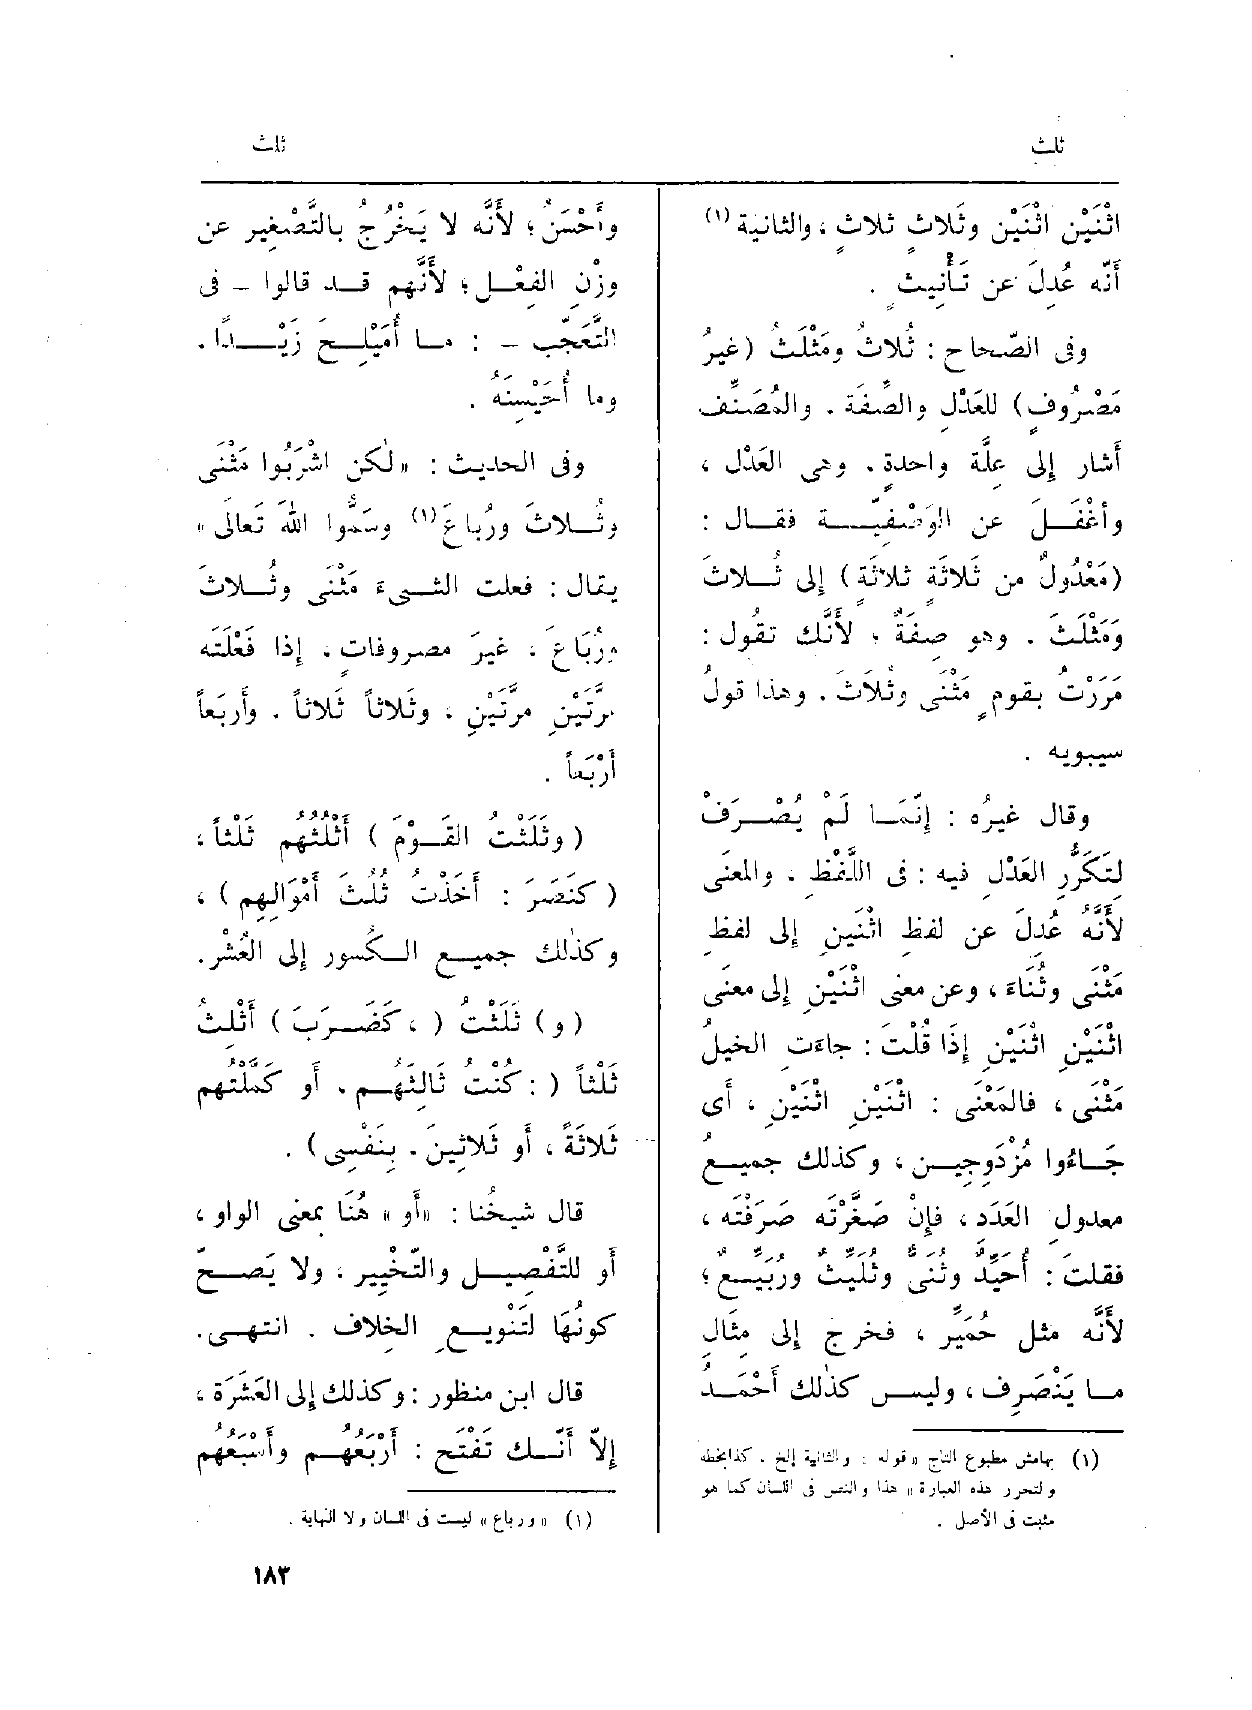 ثلث
ثلث
اثْنَيْنِ اثْنَيْنِ وثَلاثٍ ثلاثٍ ، والثانية (١)
أَنّه عُدِلَ عن تَأْنيثٍ .
وفى الصّحاح : ثُلاثُ ومَثْلَثُ (غيرُ
مَصْرُوفٍ) للعَدْلِ والصِّفَة . والمُصَنِّف
أشار إلى عِلَّة واحدةٍ . وهى العَدْل ،
وأَغْفَلَ عن الوَصْفِيّة فقال :
(مَعْدُولٌ من ثَلاثَةٍ ثلاثَةٍ) إلى ثُلاثَ
وَمَثْلَثَ . وهو صِفَةٌ ، لأَنَّك تقُول :
مَرَرْتُ بقومٍ مَثْنَى وثُلاثَ . وهذا قولُ
سيبويه .
وقال غيرُه : إِنّمَا لَمْ يُصْرَفْ
لتَكَرُّرِ العَدْل فيه : فى اللَّفْظِ . والمعنَى
لأَنَّهُ عُدِلَ عن لفظِ اثْنَينِ إلى لفظِ
مَثْنَى وثُنَاءَ ، وعن معنى اثْنَيْنِ إلى معنَى
اثْنَيْنِ اثْنَيْنِ إذَا قُلْتَ : جاءتِ الخيلُ
مَثْنَى ، فالمَعْنَى : اثْنَيْنِ اثْنَيْنِ ، أَى
جَاءُوا مُزْدَوجِين ، وكذلك جميعُ
معدولِ العَدَدِ ، فإِنْ صَغَّرْتَه صَرَفْتَه ،
فقلت : أُحَيِّدٌ وثُنَىٌّ وثُلَيِّثٌ ورُبَيِّعٌ ؛
لأَنَّه مثل حُمَيِّرٍ ، فخرج إلى مِثَالِ
ما يَنْصَرِف ، وليس كذلك أَحْمَدُ
(١) بهامش مطبوع التاج « قوله : والثانية إلخ . كذا بخطه
ولتحرر هذه العبارة » هذا والنص فى اللسان كما هو
مثبت فى الأصل .
وأَحْسَنُ ؛ لأَنَّه لا يَخْرُجُ بالتَّصْغِيرِ عن
وزْنِ الفِعْل ؛ لأَنَّهم قد قالوا – فى
التَّعَجّب – : ما أُمَيْلِحَ زَيْدًا .
وما أُحَيْسِنَهُ .
وفى الحديث : « لكن اشْرَبُوا مَثْنَى
وثُلاثَ ورُباعَ (١) وسَمُّوا اللهَ تَعالَى »
يقال : فعلت الشىءَ مَثْنَى وثُلاثَ
ورُبَاعَ ، غيرَ مصروفاتٍ ، إذا فَعَلْتَه
مرّتَيْنِ مرّتَينِ ، وثَلاثاً ثَلاثاً . وأَربَعاً
أَرْبَعاً .
( وثَلَثْتُ القَوْمَ ) أَثْلُثُهُم ثَلْثاً ،
( كنَصَرَ : أَخَذْتُ ثُلُثَ أَمْوَالِهِم ) ،
وكذلك جميع الكُسور إلى العُشْر .
( و ) ثَلَثْتُ ( ، كضَرَبَ ) أَثْلِثُ
ثَلْثاً ( : كُنْت ثَالِثَهُم . أو كَمَّلْتُهُم
ثَلاثَةً ، أو ثَلاثِينَ . بنَفْسِى ) .
قال شيخُنا : « أَو » هُنَا بمعنى الواو ،
أو للتَّفْصِيل والتّخْيِيرِ ، ولا يَصحّ
كونُهَا لتَنْوِيعِ الخِلاف . انتهى .
قال ابن منظور : وكذلك إلى العَشَرَة ،
إلاّ أَنّك تَفْتَح : أَرْبَعُهُم وأَسْبَعُهُم
(١) « ورباع » ليست فى اللسان ولا النهاية .
١٨٣